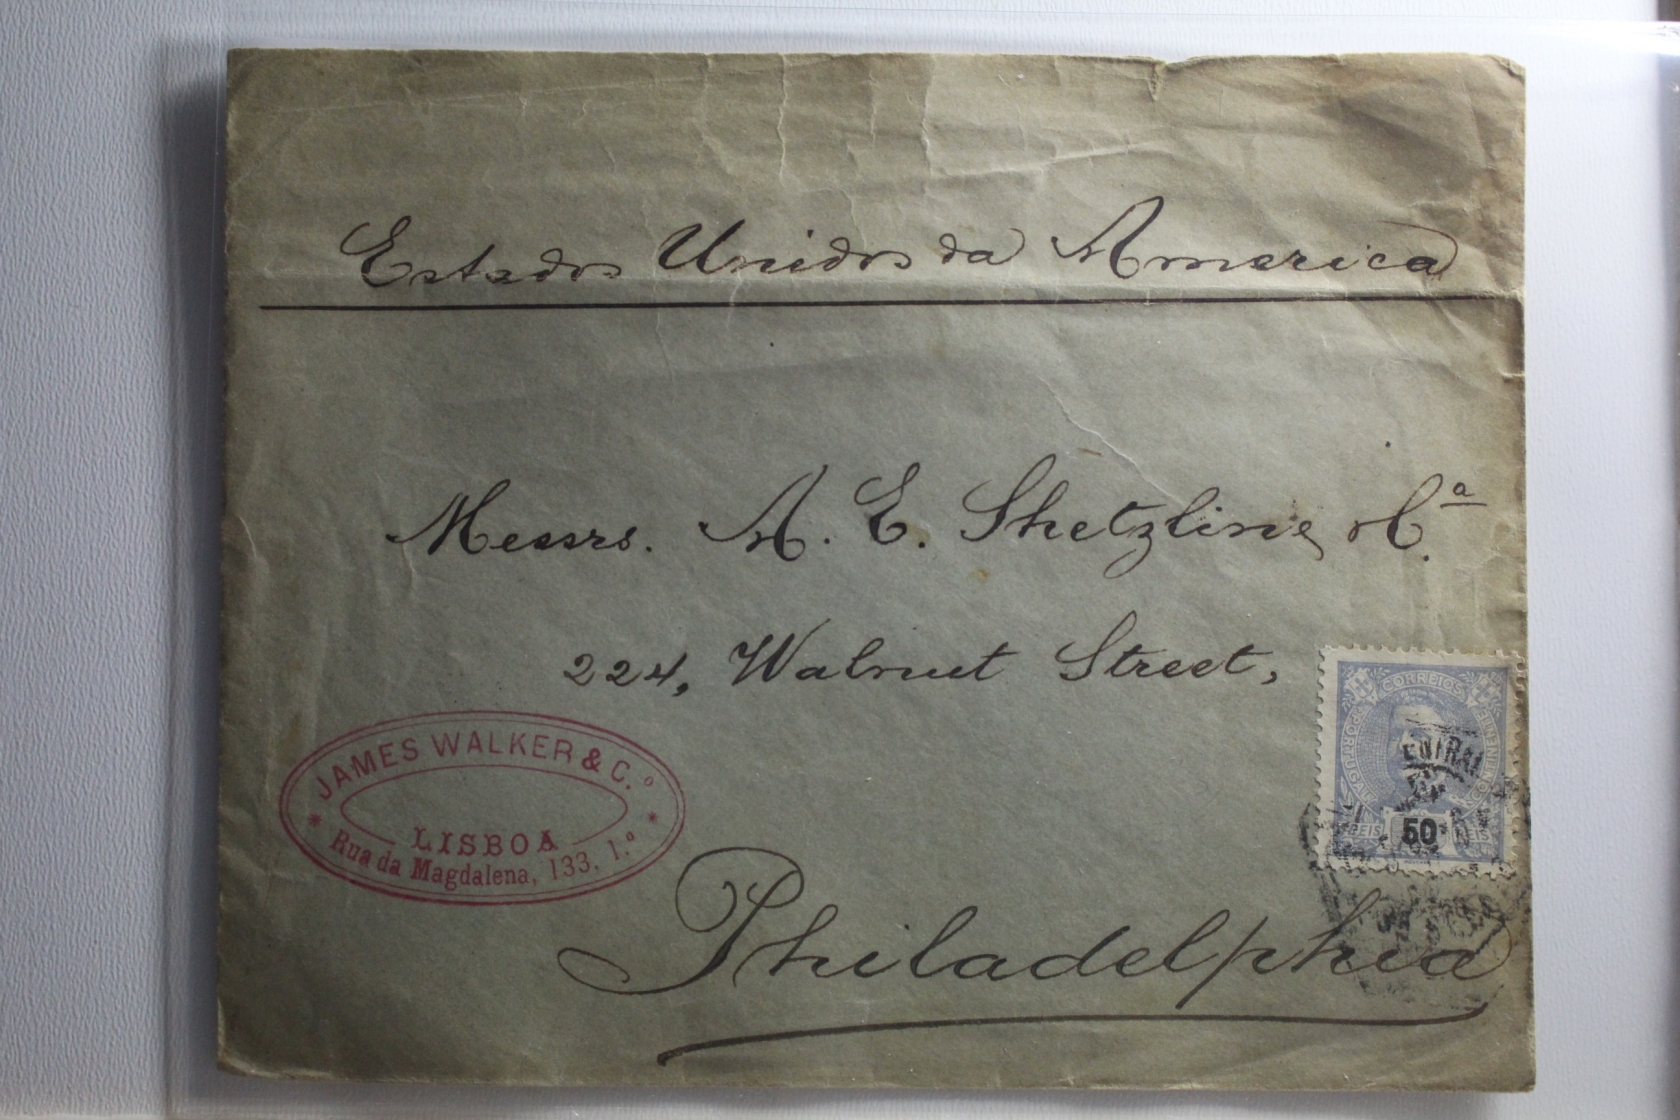 Estados Unidos da America
Messrs. A. E. Shetzline & C.ª
224, Walnut Street,
CORREIOS
REIS 50 REIS
JAMES WALKER & C.º
LISBOA
Rua da Magdalena, 133, 1.º
Philadelphia